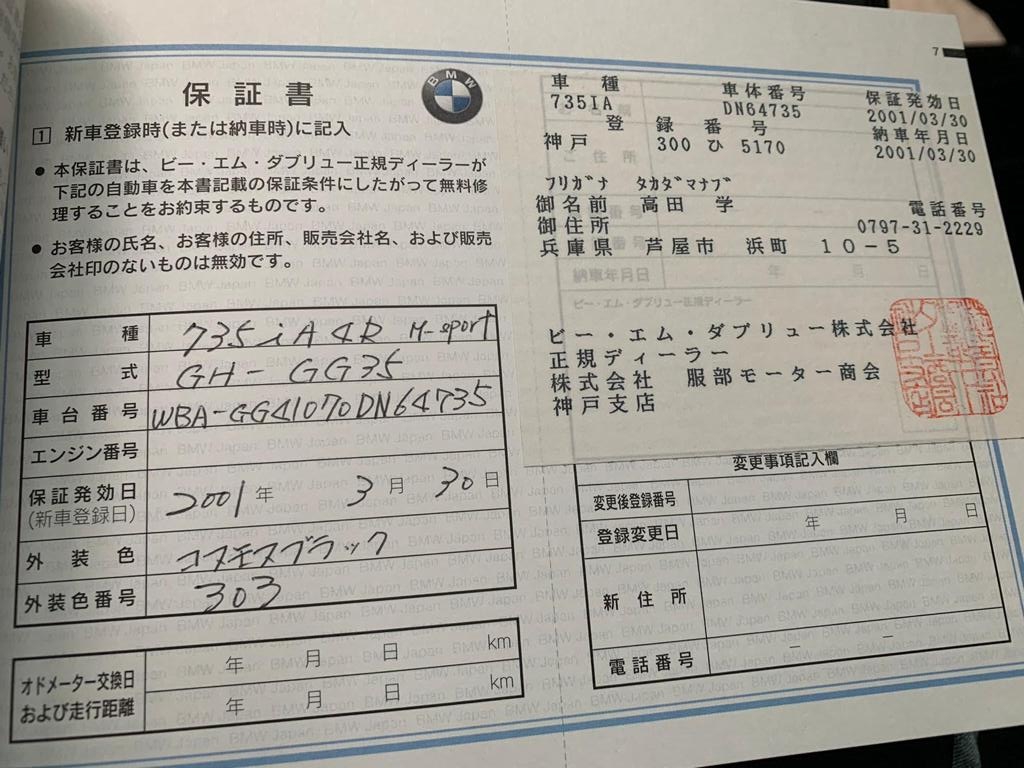 7
保証書
BMW
1 新車登録時(または納車時)に記入
● 本保証書は、ビー・エム・ダブリュー正規ディーラーが
下記の自動車を本書記載の保証条件にしたがって無料修
理することをお約束するものです。
● お客様の氏名、お客様の住所、販売会社名、および販売
会社印のないものは無効です。
車種 735iA 4R M-sport
型式 GH-GG35
車台番号 WBA-GG41070DN64735
エンジン番号
保証発効日 2001年 3月 30日
(新車登録日)
外装色 コスモスブラック
外装色番号 303
オドメーター交換日 年 月 日 km
および走行距離 年 月 日 km
車種 車体番号 保証発効日
735IA DN64735 2001/03/30
登録番号 納車年月日
神戸 300 ひ 5170 2001/03/30
フリガナ タカダマナブ
御名前 高田 学 電話番号
御住所 0797-31-2229
兵庫県 芦屋市 浜町 10-5
納車年月日 年 月 日
ビー・エム・ダブリュー正規ディーラー
ビー・エム・ダブリュー株式会社
正規ディーラー
株式会社 服部モーター商会
神戸支店
変更事項記入欄
変更後登録番号
登録変更日 年 月 日
新住所
電話番号 — —